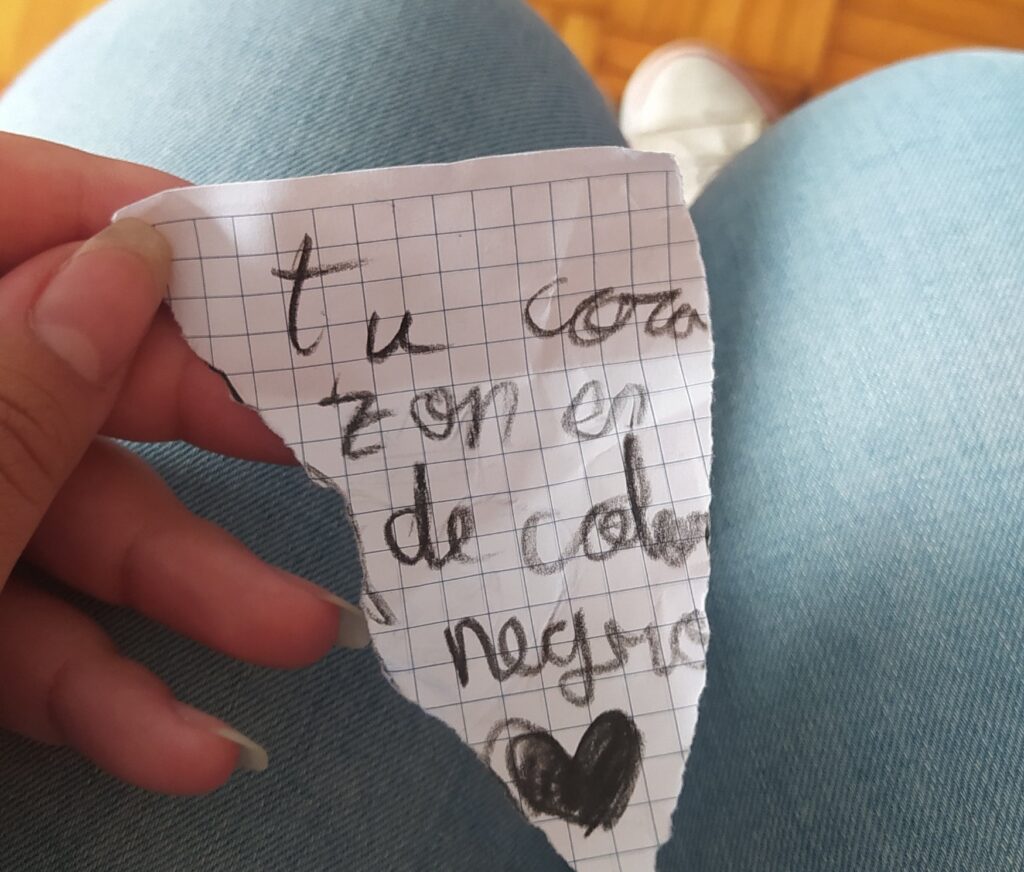 tu cora
zon en
de color
negro